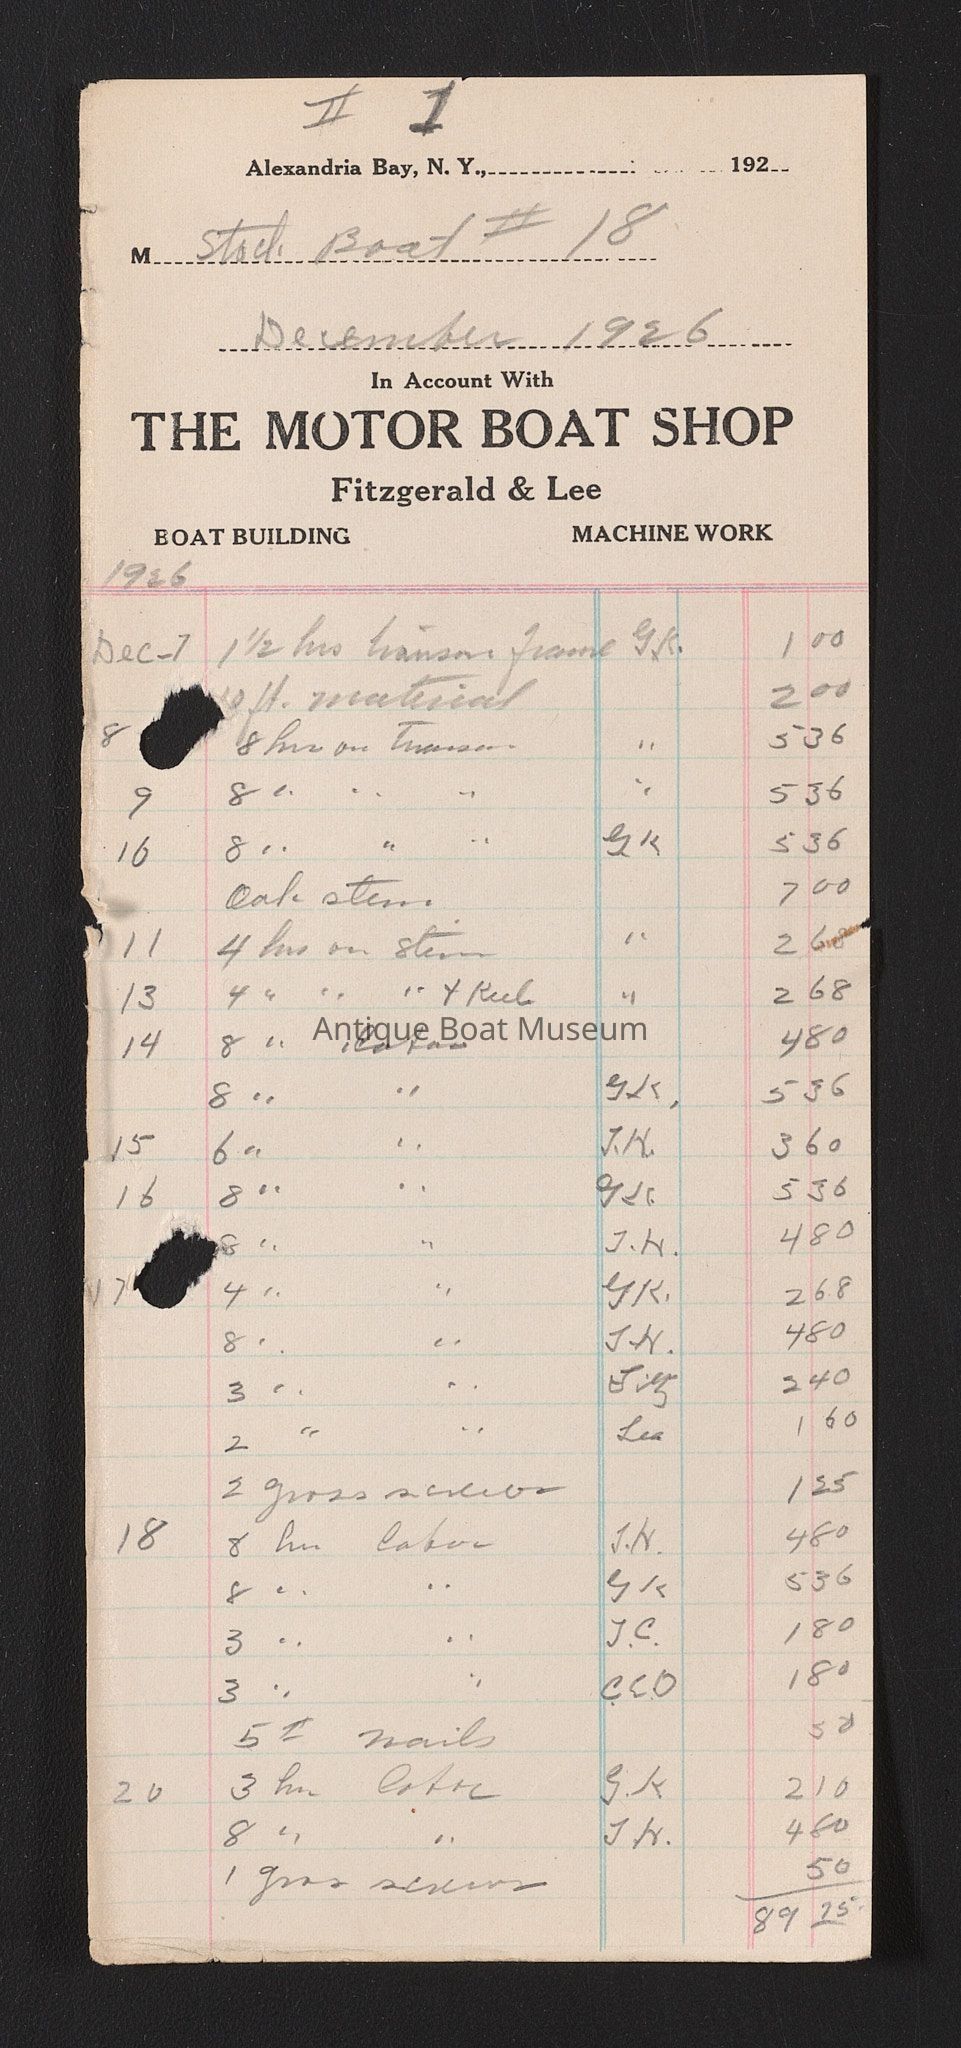 # 1
Alexandria Bay, N. Y., 192
M Stock Boat # 18
December 1926
In Account With
THE MOTOR BOAT SHOP
Fitzgerald & Lee
BOAT BUILDING MACHINE WORK
1926
Dec-7 1 1/2 hrs transom frame G.K. 1 00
10 ft. material 2 00
8 8 hrs on Transom " 5 36
9 8 " " " " 5 36
10 8 " " " GK 5 36
Oak stem 7 00
11 4 hrs on Stem " 2 68
13 4 " " " & Keel " 2 68
Antique Boat Museum
14 8 " Labor 4 80
8 " " GK, 5 36
15 6 " " J.H. 3 60
16 8 " " GK 5 36
8 " " J.H. 4 80
17 4 " " GK. 2 68
8 " " J.H. 4 80
3 " " Fitz 2 40
2 " " Lee 1 60
2 gross screws 1 25
18 8 hr labor J.H. 4 80
8 " " GK 5 36
3 " " J.C. 1 80
3 " " C.E.O 1 80
5 # nails 50
20 3 hr labor G.K 2 10
8 " " J.H. 4 80
1 gross screws 50
89 75